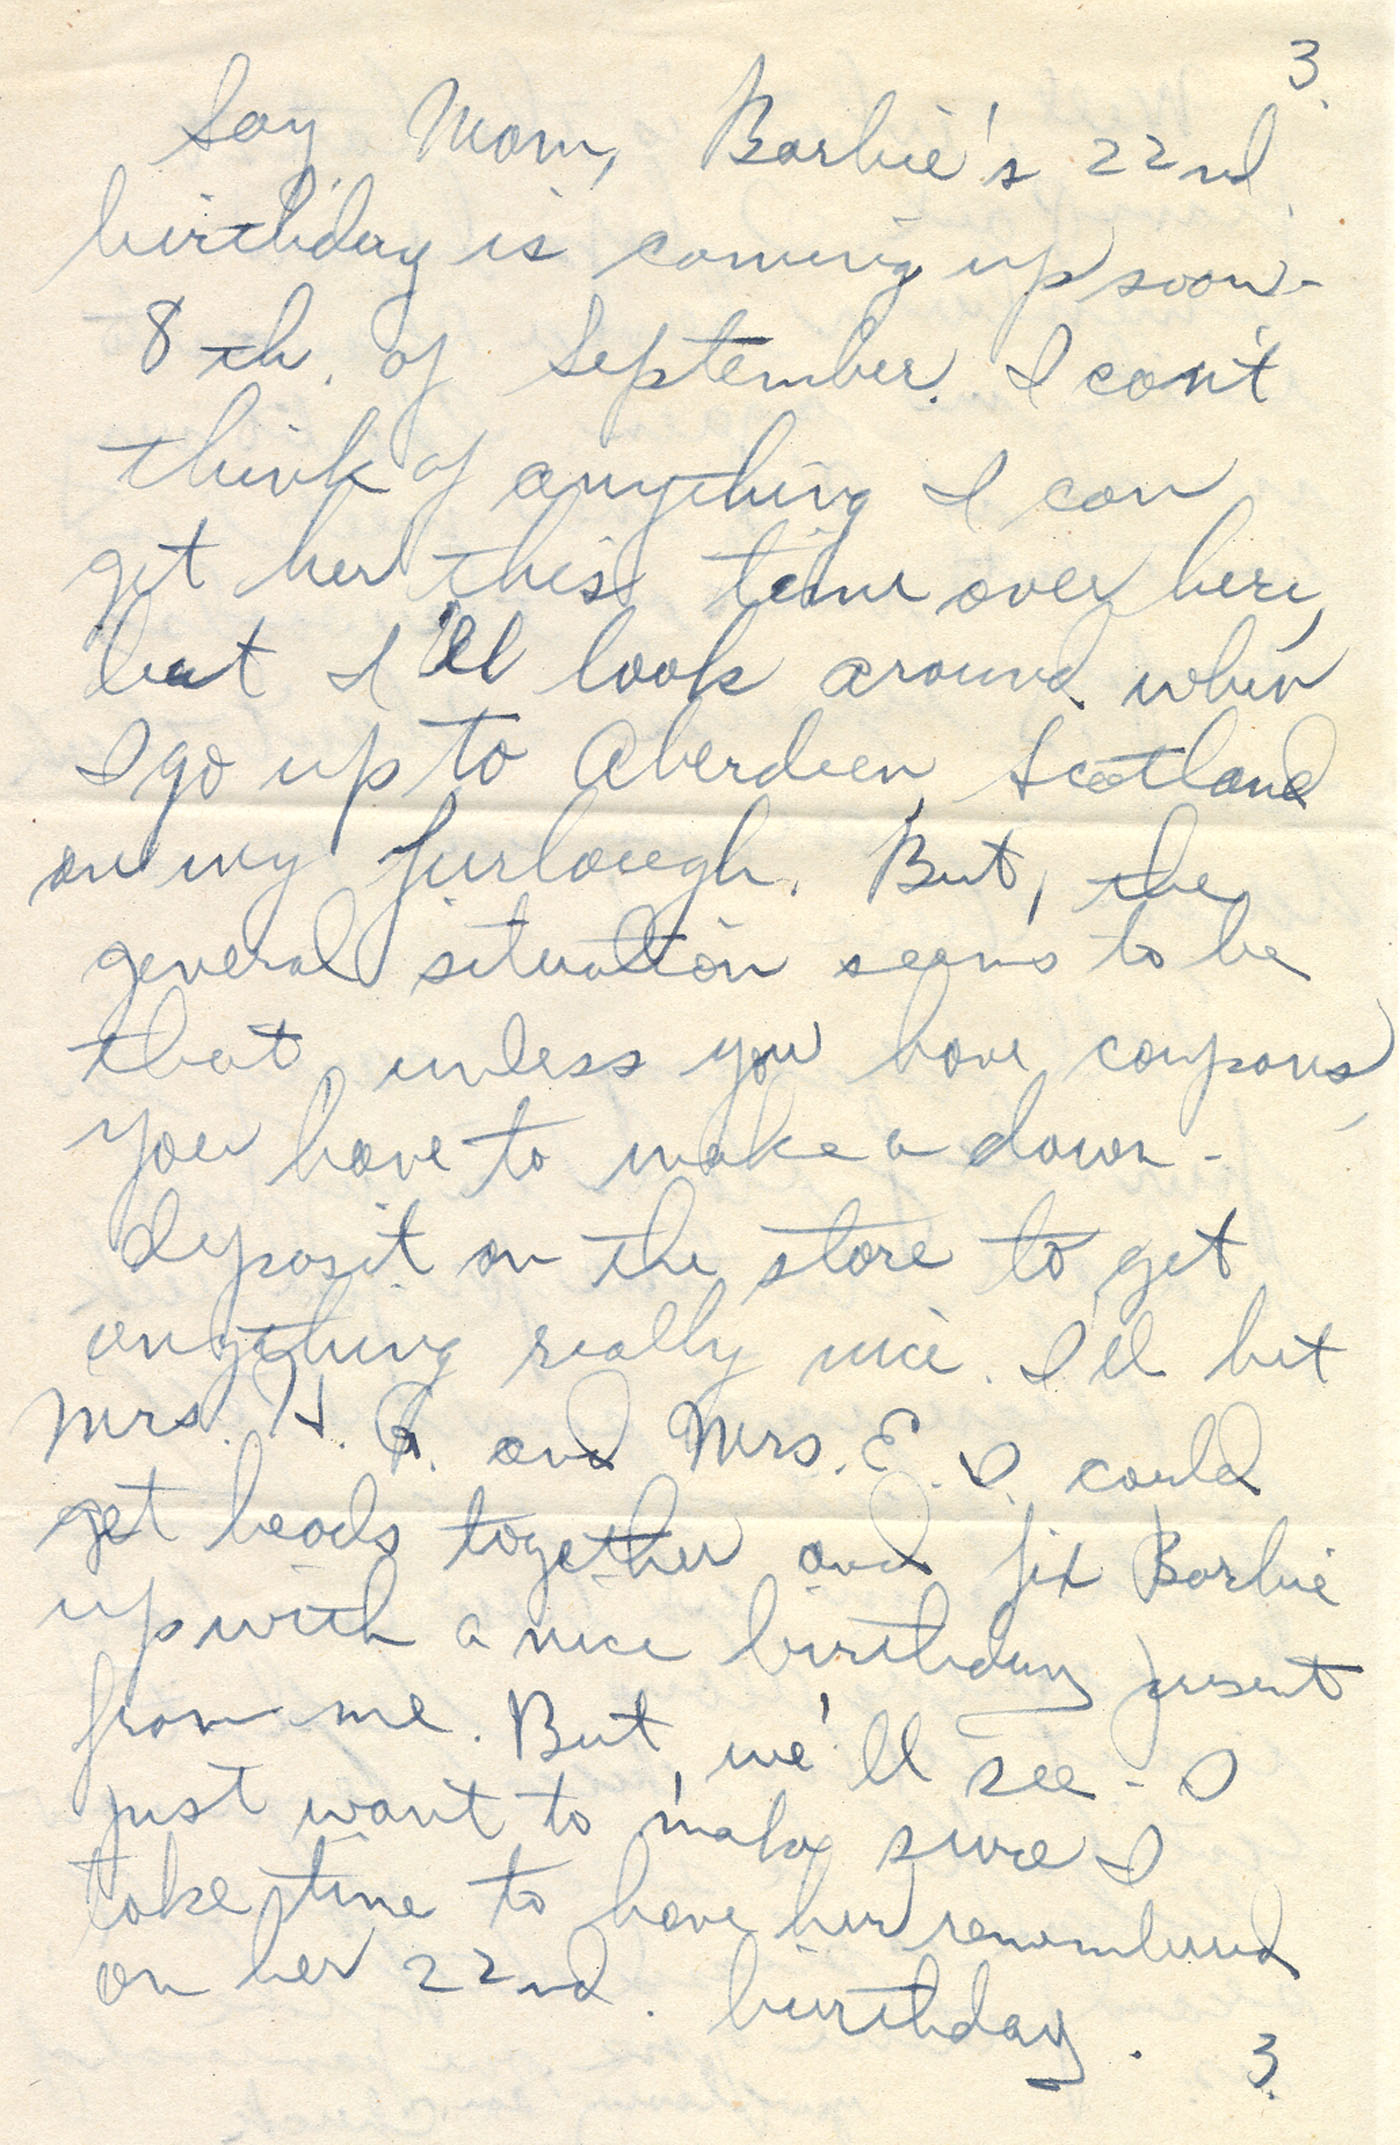 3.
Say Mom, Barbie's 22nd.
birthday is coming up soon -
8th. of September. I can't
think of anything I can
get her this time over here,
but I'll look around when
I go up to Aberdeen, Scotland
on my furlough. But, the
general situation seems to be
that unless you have coupons,
you have to make a down-
deposit on the store to get
anything really nice. I'll bet
Mrs. H. R. and Mrs. E. I. could
get heads together and fix Barbie
up with a nice birthday present
from me. But, we'll see - I
just want to make sure I
take time to have her remembered
on her 22nd. birthday.
3.